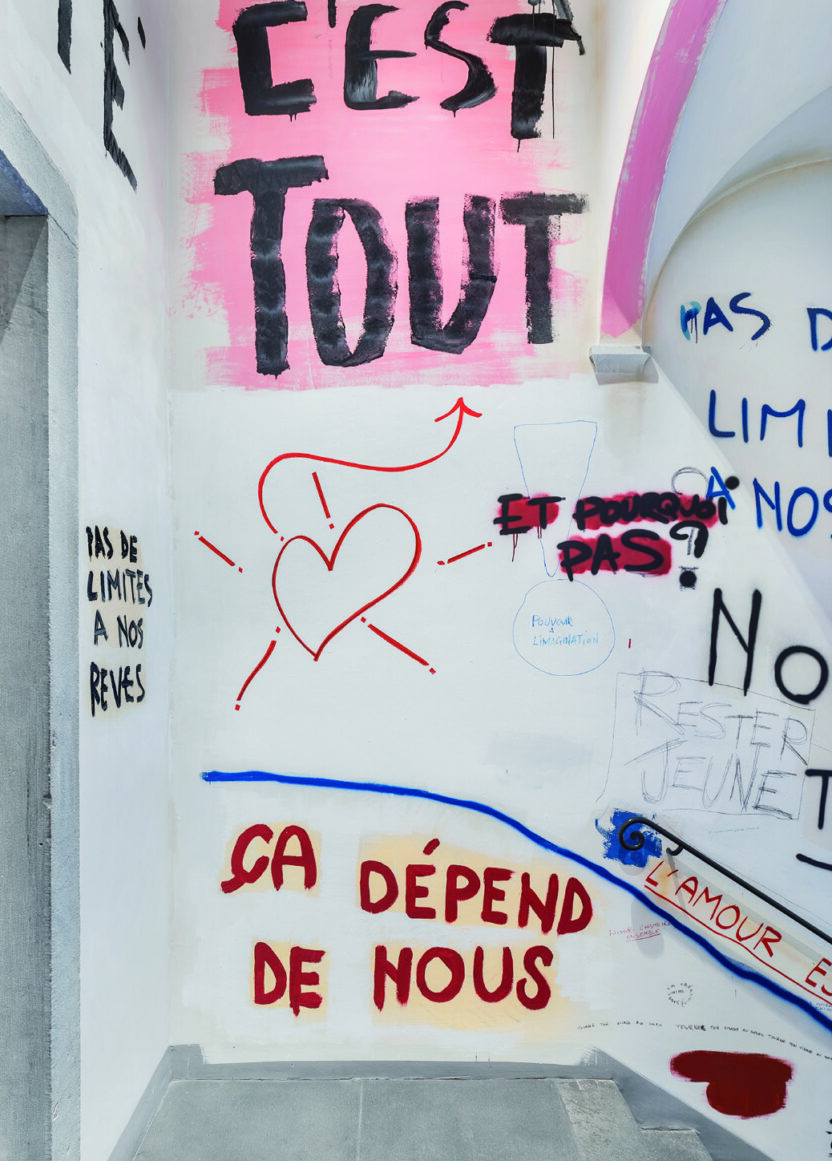 C'EST
TOUT
PAS DE
LIMITES
A NOS
REVES
ET POURQUOI
PAS?
POUVOIR
À
L'IMAGINATION
PAS D
LIMI
À NOS
NO
RESTER
JEUNE
L'AMOUR ES
ÇA DÉPEND
DE NOUS